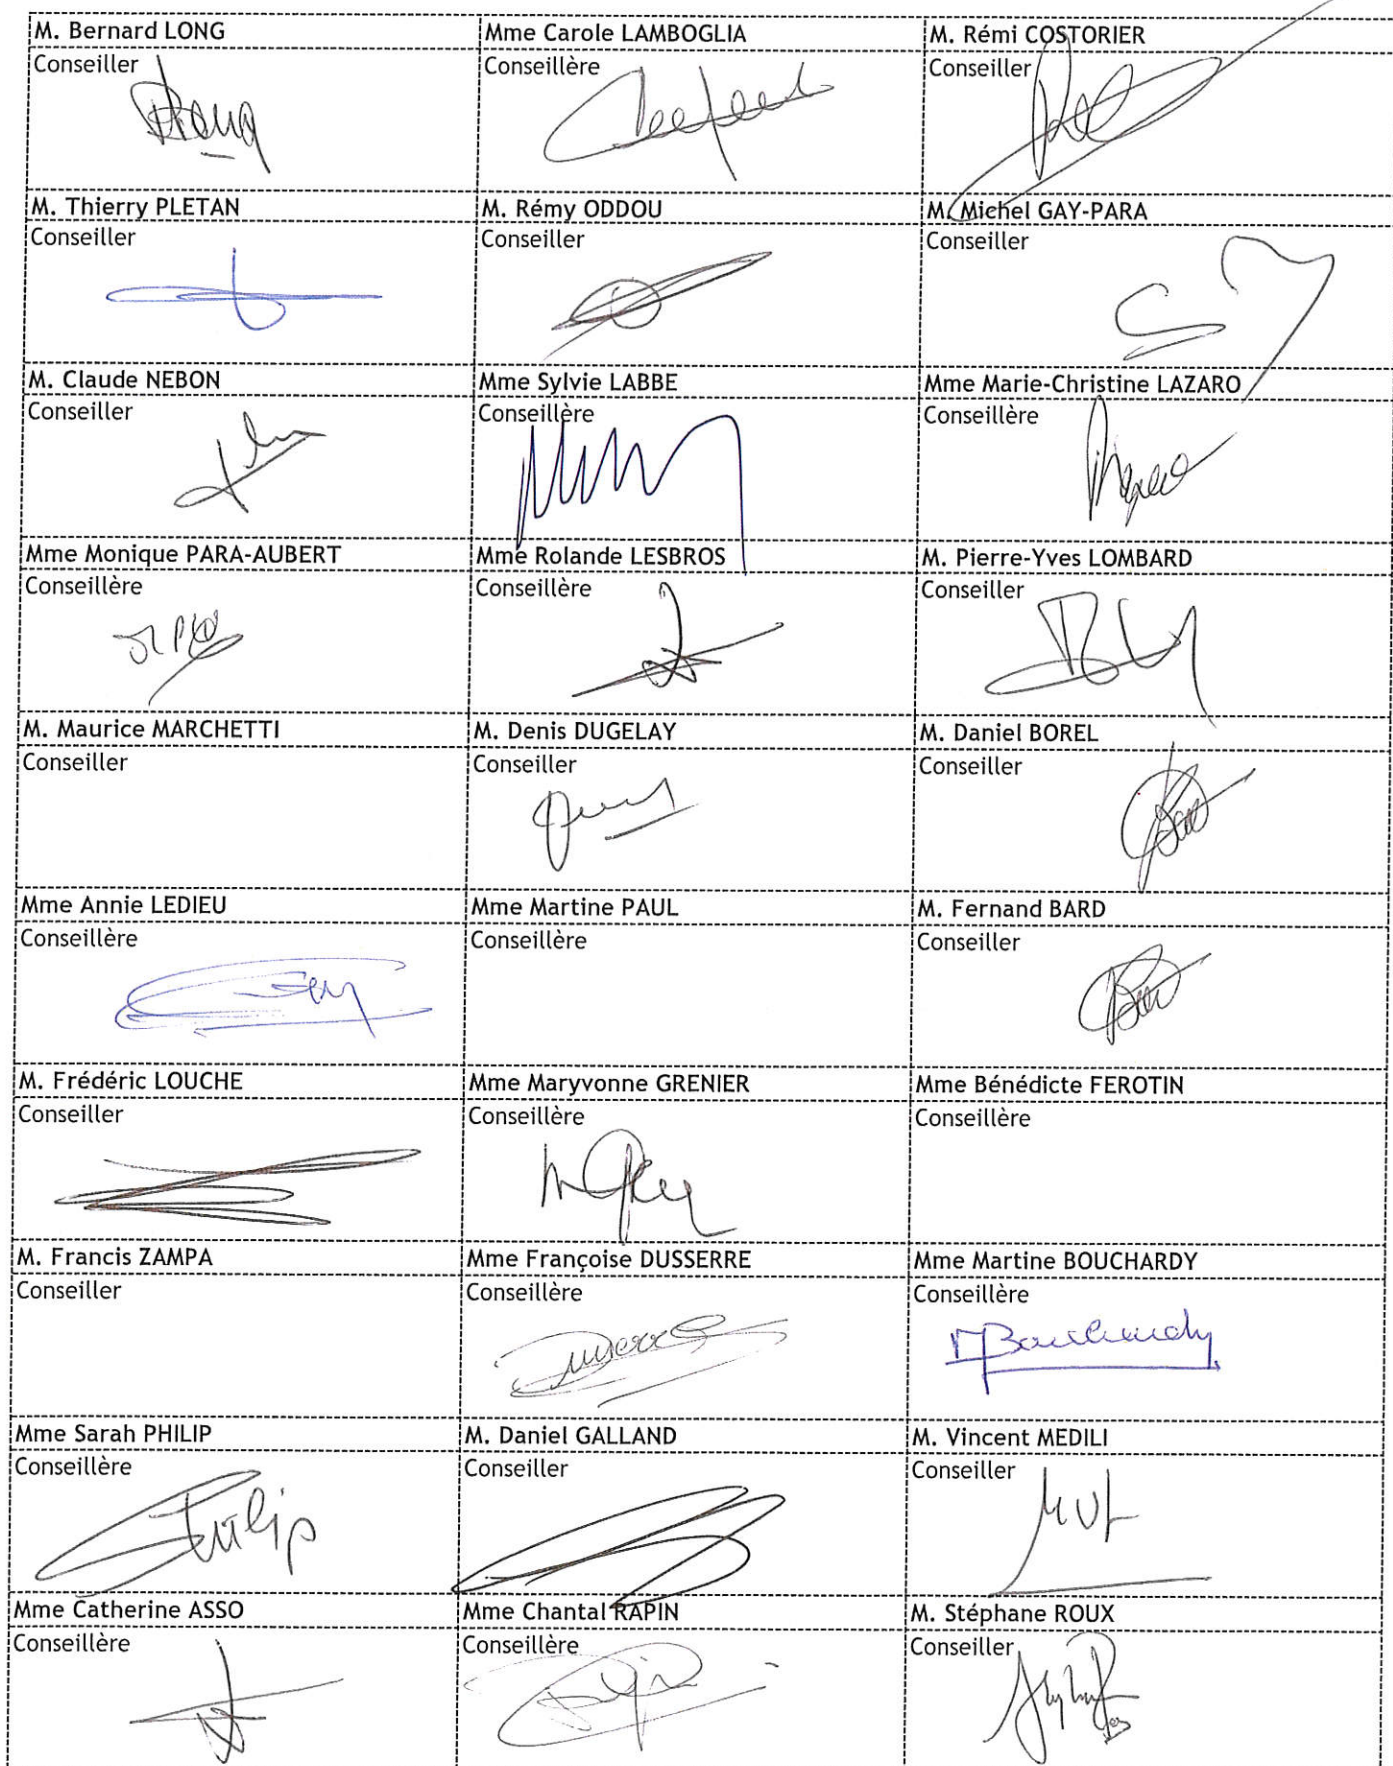 M. Bernard LONG
Mme Carole LAMBOGLIA
M. Rémi COSTORIER
Conseiller
Conseillère
Conseiller
M. Thierry PLETAN
M. Rémy ODDOU
M. Michel GAY-PARA
Conseiller
Conseiller
Conseiller
M. Claude NEBON
Mme Sylvie LABBE
Mme Marie-Christine LAZARO
Conseiller
Conseillère
Conseillère
Mme Monique PARA-AUBERT
Mme Rolande LESBROS
M. Pierre-Yves LOMBARD
Conseillère
Conseillère
Conseiller
M. Maurice MARCHETTI
M. Denis DUGELAY
M. Daniel BOREL
Conseiller
Conseiller
Conseiller
Mme Annie LEDIEU
Mme Martine PAUL
M. Fernand BARD
Conseillère
Conseillère
Conseiller
M. Frédéric LOUCHE
Mme Maryvonne GRENIER
Mme Bénédicte FEROTIN
Conseiller
Conseillère
Conseillère
M. Francis ZAMPA
Mme Françoise DUSSERRE
Mme Martine BOUCHARDY
Conseiller
Conseillère
Conseillère
MBouchardy
Mme Sarah PHILIP
M. Daniel GALLAND
M. Vincent MEDILI
Conseillère
Conseiller
Conseiller
Philip
Mme Catherine ASSO
Mme Chantal RAPIN
M. Stéphane ROUX
Conseillère
Conseillère
Conseiller